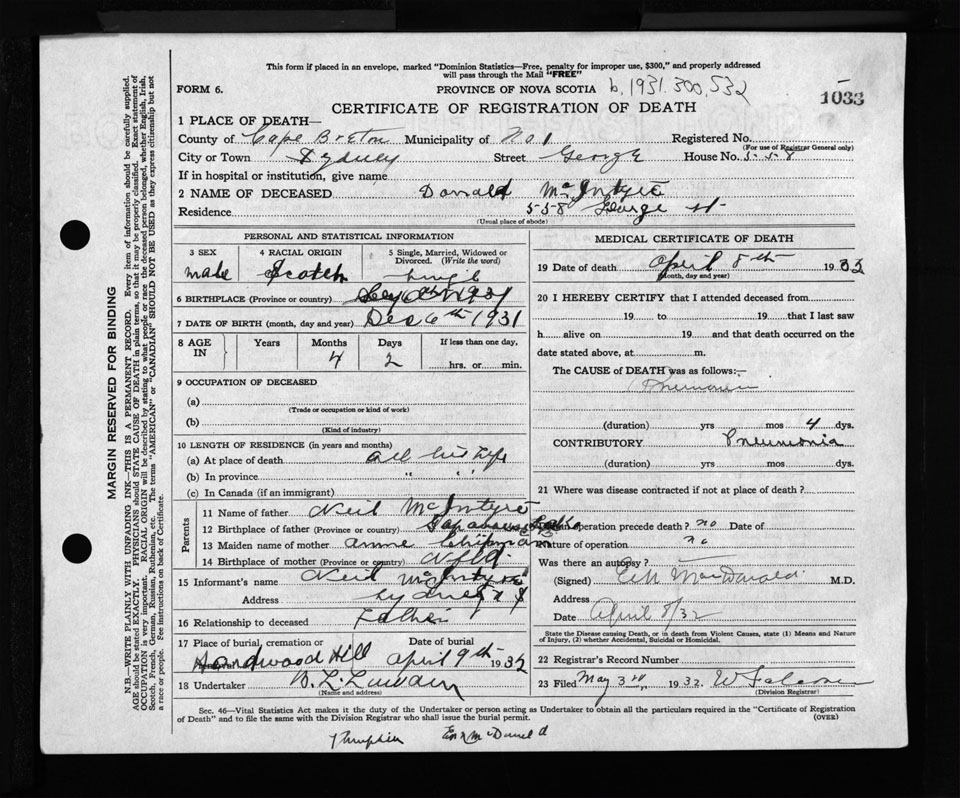 This form if placed in an envelope, marked "Dominion Statistics—Free, penalty for improper use, $300," and properly addressed
will pass through the Mail "FREE"
FORM 6.
PROVINCE OF NOVA SCOTIA b, 1931.300,532
1033
CERTIFICATE OF REGISTRATION OF DEATH
1 PLACE OF DEATH—
County of Cape Breton Municipality of No. 1 Registered No.
(For use of Registrar General only)
City or Town Sydney Street George House No. 558
If in hospital or institution, give name
2 NAME OF DECEASED Donald McIntyre
Residence 558 George St
(Usual place of abode)
PERSONAL AND STATISTICAL INFORMATION
3 SEX 4 RACIAL ORIGIN 5 Single, Married, Widowed or Divorced. (Write the word)
male Scotch single
6 BIRTHPLACE (Province or country)
7 DATE OF BIRTH (month, day and year) Dec 6th 1931
8 AGE IN Years Months Days If less than one day,
4 2 hrs. or min.
9 OCCUPATION OF DECEASED
(a)
(Trade or occupation or kind of work)
(b)
(Kind of industry)
10 LENGTH OF RESIDENCE (in years and months)
(a) At place of death all his life
(b) In province " " "
(c) In Canada (if an immigrant)
Parents
11 Name of father Neil McIntyre
12 Birthplace of father (Province or country)
13 Maiden name of mother Anne Chipman
14 Birthplace of mother (Province or country) Nfld.
15 Informant's name Neil McIntyre
Address Sydney N S
16 Relationship to deceased Father
17 Place of burial, cremation or Date of burial
Hardwood Hill April 9th 1932
18 Undertaker B. L.
(Name and address)
MEDICAL CERTIFICATE OF DEATH
19 Date of death April 8th 1932
(Month, day and year)
20 I HEREBY CERTIFY that I attended deceased from
19 to 19 that I last saw
h alive on 19 and that death occurred on the
date stated above, at m.
The CAUSE of DEATH was as follows:—
Pneumonia
(duration) yrs mos 4 dys.
CONTRIBUTORY Pneumonia
(duration) yrs mos dys.
21 Where was disease contracted if not at place of death?
operation precede death? no Date of
Nature of operation no
Was there an autopsy?
(Signed) MacDonald M.D.
Address
Date April 8/32
State the Disease causing Death, or in death from Violent Causes, state (1) Means and Nature
of Injury, (2) whether Accidental, Suicidal or Homicidal.
22 Registrar's Record Number
23 Filed May 3rd, 1932.
(Division Registrar)
Sec. 46—Vital Statistics Act makes it the duty of the Undertaker or person acting as Undertaker to obtain all the particulars required in the "Certificate of Registration
of Death" and to file the same with the Division Registrar who shall issue the burial permit. (OVER)
McDonald
MARGIN RESERVED FOR BINDING
N.B.—WRITE PLAINLY WITH UNFADING INK—THIS IS A PERMANENT RECORD. Every item of information should be carefully supplied.
AGE should be stated EXACTLY. PHYSICIANS should STATE CAUSE OF DEATH in plain terms, so that it may be properly classified. Exact statement of
OCCUPATION is very important. RACIAL ORIGIN will be described by stating to what people or race the deceased person belonged, whether English, Irish,
Scotch, French, German, Russian, Ruthenian, etc. The terms "AMERICAN" or "CANADIAN" SHOULD NOT BE USED as they express citizenship but not
a race or people. See instructions on back of Certificate.